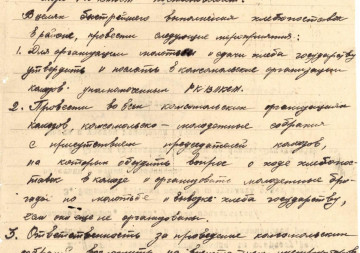 В целях быстрейшего выполнения хлебопоставок
в районе, провести следующие мероприятия:
1. Для организации молотьбы и сдачи хлеба государству
утвердить и послать в комсомольские организации
колхозов уполномоченных РК ВЛКСМ.
2. Провести во всех комсомольских организациях
колхозов, комсомольско-молодежные собрания
с присутствием председателей колхозов,
на которых обсудить вопрос о ходе хлебопос-
тавок в колхозе и организовать молодежные бри-
гады по молотьбе и вывозке хлеба государству,
если они еще не организованы.
3. Ответственность за проведение комсомольских